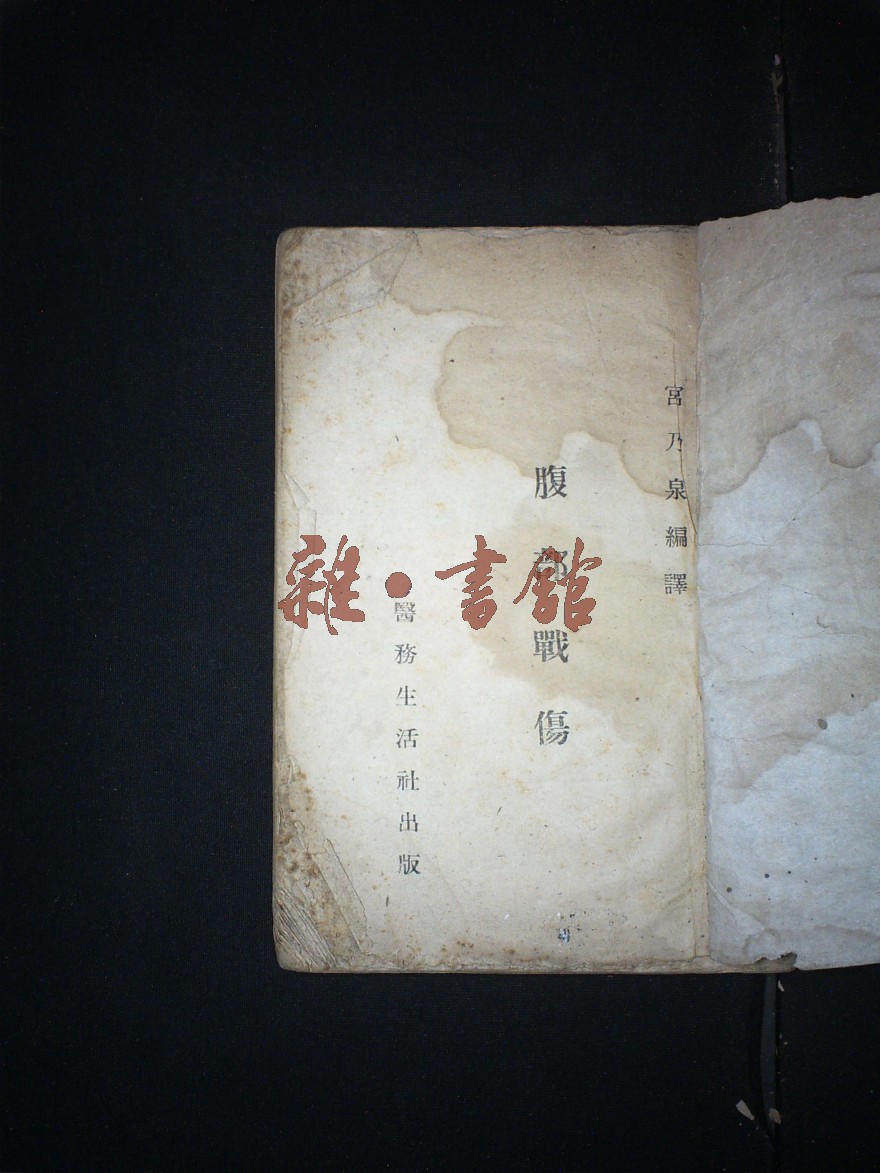 宮乃泉編譯
腹部戰傷
醫務生活社出版
雜·書館